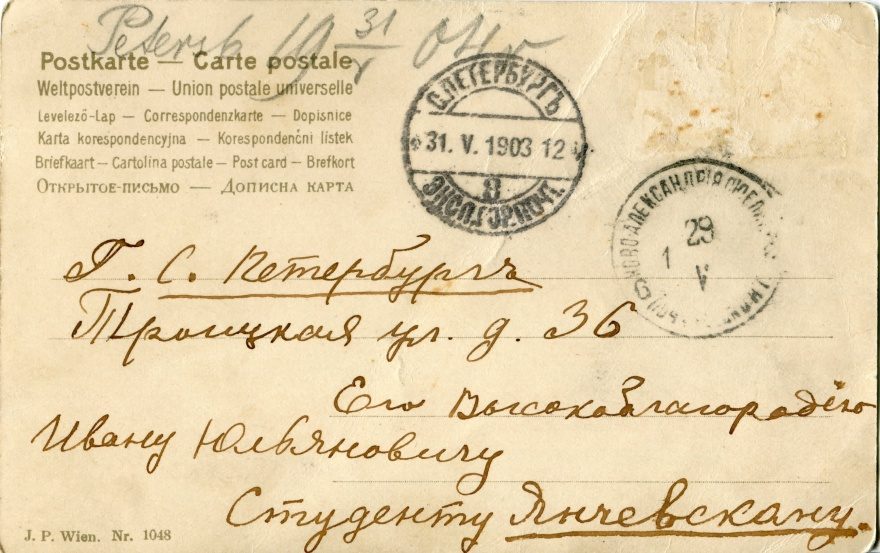 Petersb 19 31/V 04
Postkarte — Carte postale
Weltpostverein — Union postale universelle
Levelező-Lap — Correspondenzkarte — Dopisnice
Karta korespondencyjna — Korespondenční lístek
Briefkaart — Cartolina postale — Post card — Brefkort
Открытое-письмо — Дописна карта
С.ПЕТЕРБУРГЪ
31. V. 1903 12
8
ЭКСП.ГОР.ПОЧТ.
НОВО-АЛЕКСАНДРІЯ ЛЮБЛ.
29
1
V
Г. С. Петербургъ
Троицкая ул. д. 36
Его Высокоблагородію
Ивану Юльяновичу
Студенту Янчевскому.
J. P. Wien. Nr. 1048